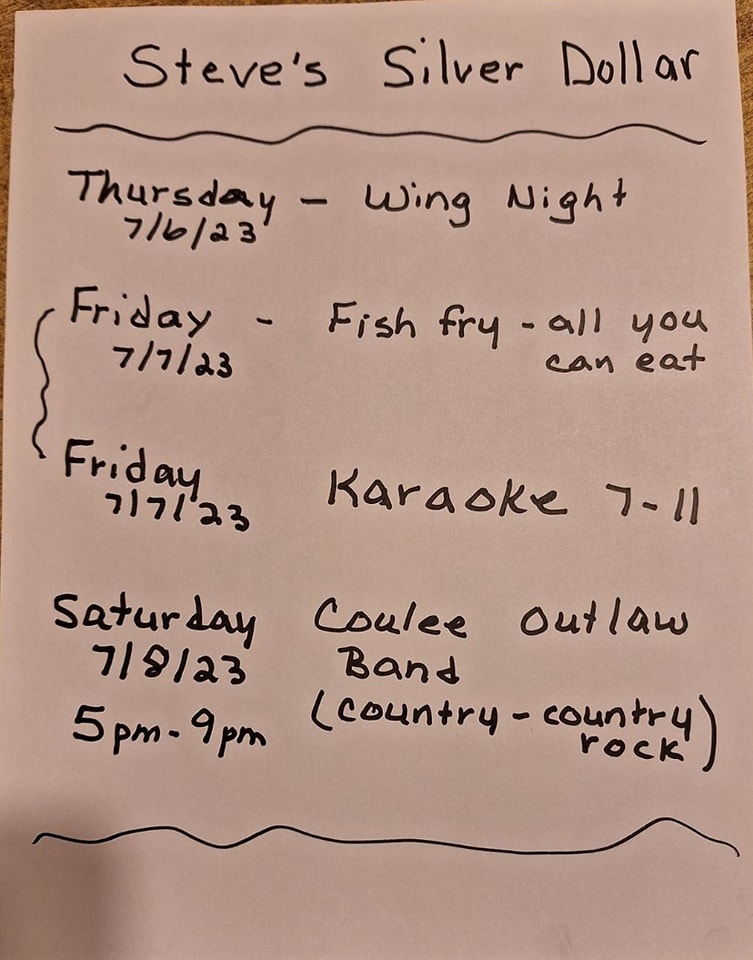 Steve's Silver Dollar
Thursday - Wing Night
7/6/23
Friday - Fish fry - all you
7/7/23 can eat
Friday Karaoke 7-11
7/7/23
Saturday Coulee Outlaw
7/8/23 Band
5pm-9pm (country - country
rock)